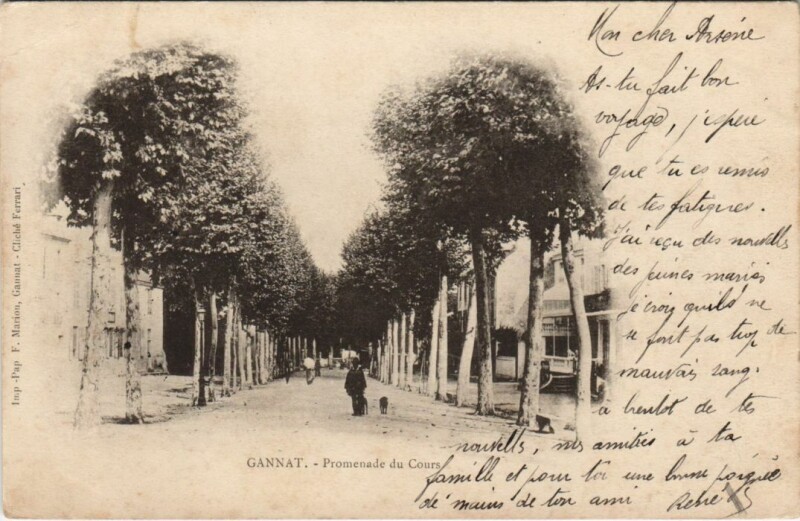 Mon cher Arsène
As-tu fait bon
voyage, j'espère
que tu es remis
de tes fatigues.
J'ai reçu des nouvelles
des jeunes mariés
je crois qu'ils ne
se font pas trop de
mauvais sang.
à bientot de tes
nouvelles, mes amitiés à ta
famille et pour toi une bonne poignée
de mains de ton ami René
GANNAT. - Promenade du Cours
Imp.-Pap F. Marion, Gannat - Cliché Ferrari